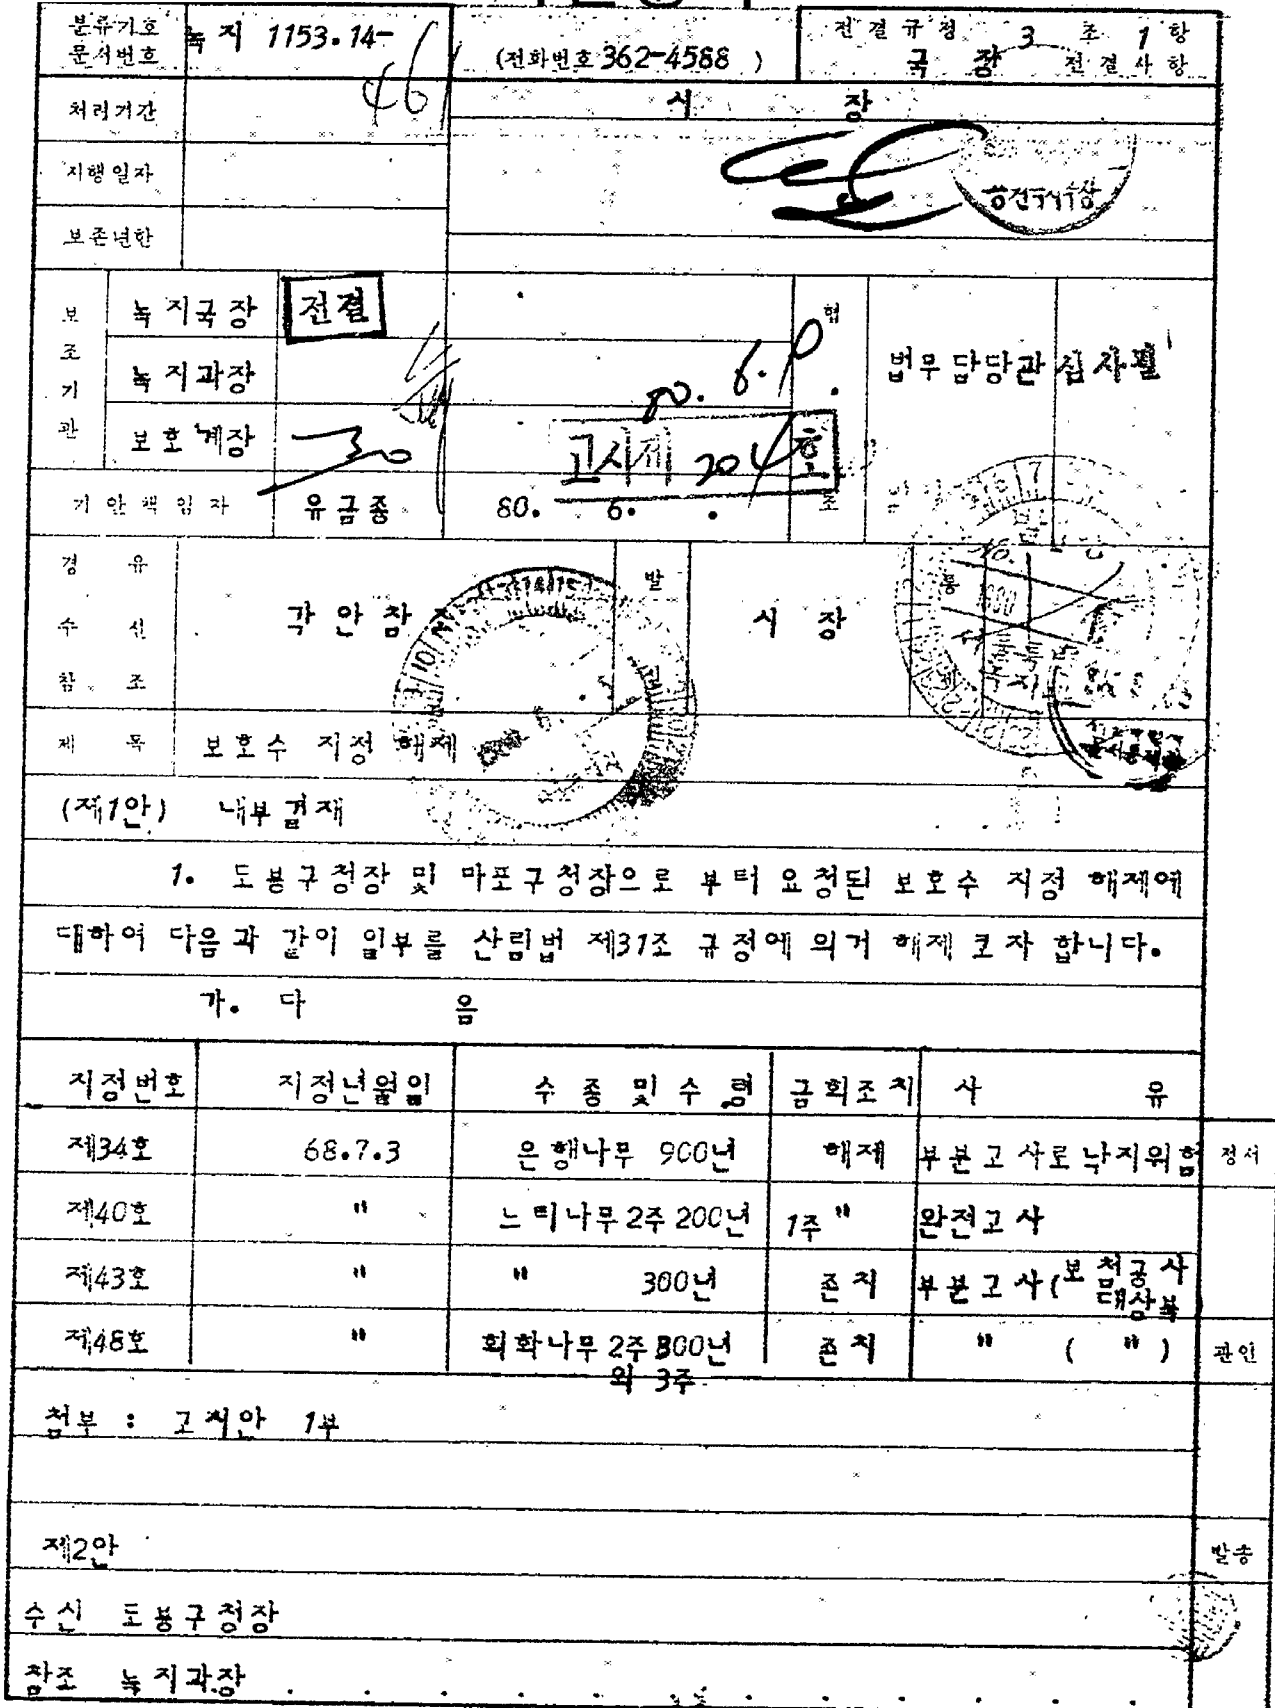 분류기호 문서번호 녹지 1153.14- 461
(전화번호 362-4588 )
전결규정 3 조 1 항
국 장 전결사항
처리기간
시 장
시행일자
보존년한
보조기관
녹지국장 전결
녹지과장
보호계장
협조
법무담당관 심사필
80. 6. 9.
고시제 204호
기안책임자 유금종 80. 6. .
경유
수신
참조
각안참조
발
시 장
제 목 보호수 지정 해제
(제1안) 내부결재
1. 도봉구청장 및 마포구청장으로 부터 요청된 보호수 지정 해제에
대하여 다음과 같이 일부를 산림법 제31조 규정에 의거 해제 코자 합니다.
가. 다 음
지정번호 지정년월일 수종 및 수령 금회조치 사 유
제34호 68.7.3 은행나무 900년 해제 부분고사로 낙지위험
정서
제40호 " 느티나무 2주 200년 1주 " 완전고사
제43호 " " 300년 존치 부분고사(보첨공사
대상목
제48호 " 회화나무 2주 800년 존치 " ( " )
외 3주
관인
첨부 : 고시안 1부
제2안
발송
수신 도봉구청장
참조 녹지과장